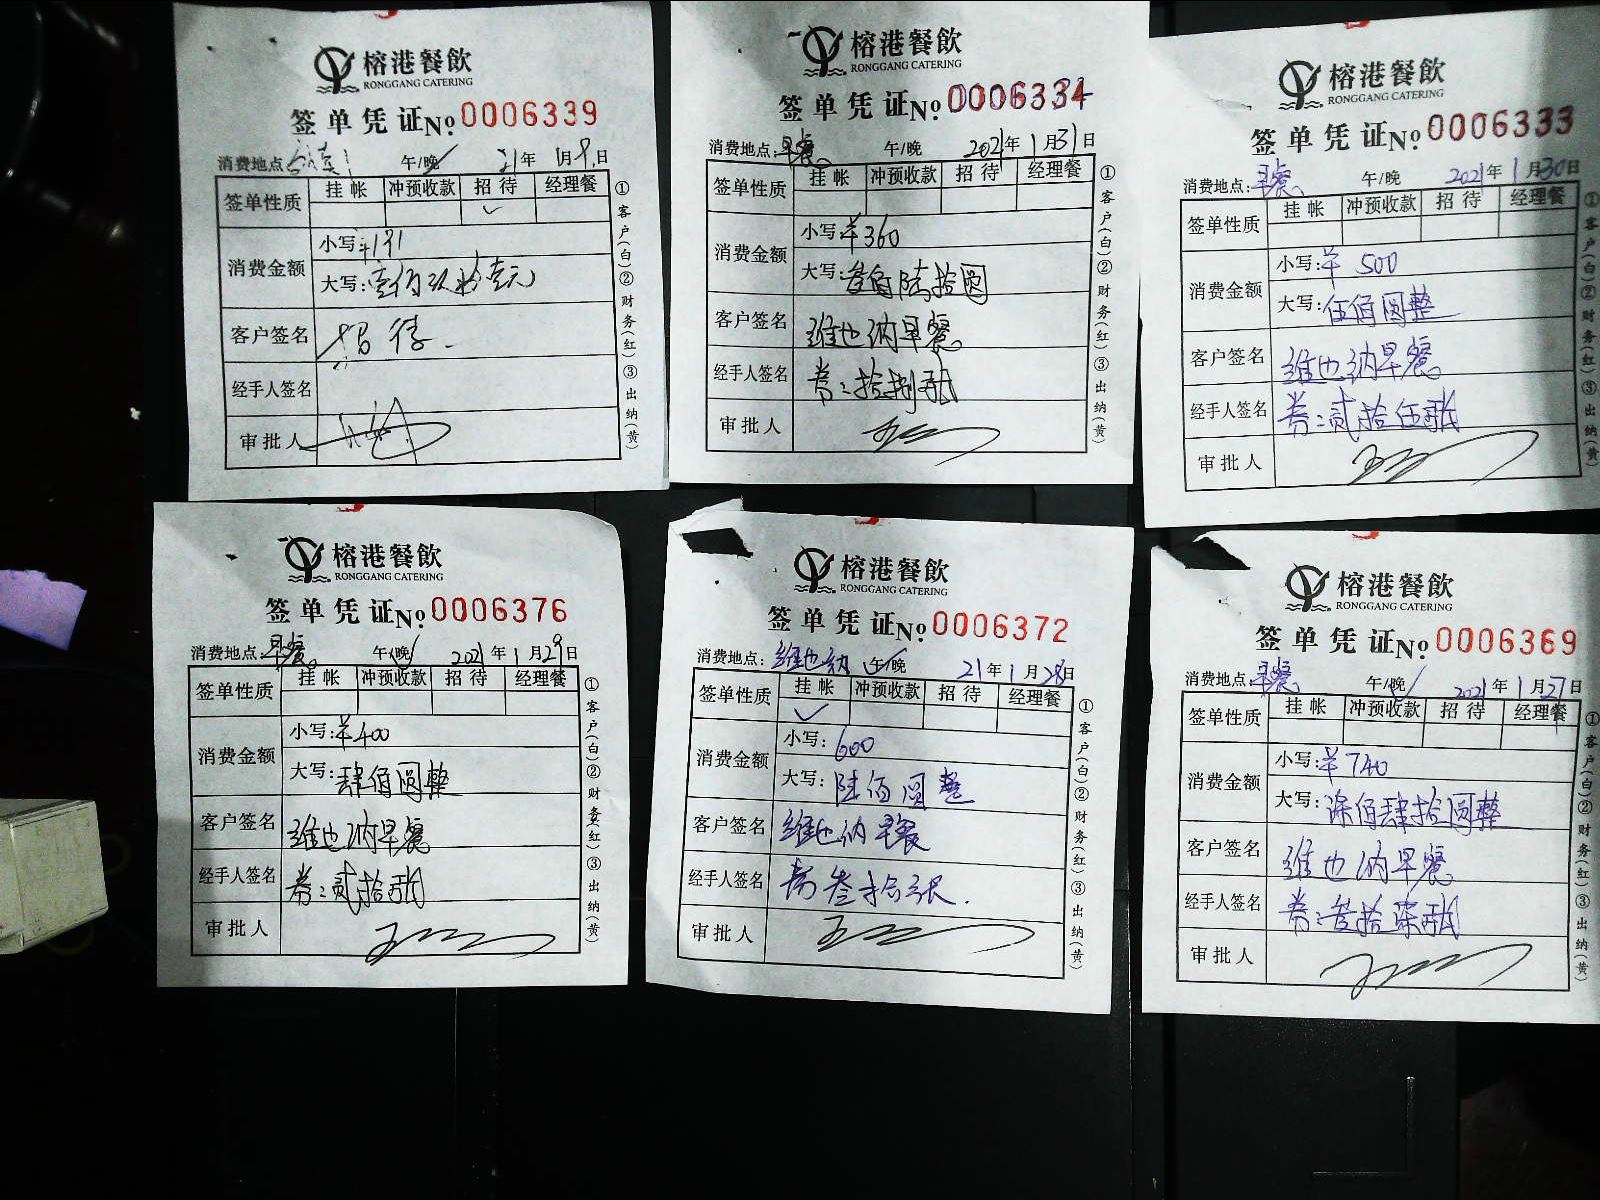 榕港餐飲
RONGGANG CATERING
签单凭证No.0006339
消费地点 午/晚 21年1月9日
签单性质 挂帐 冲预收款 招待 经理餐
消费金额
小写:¥191
大写:壹佰玖拾壹元
客户签名 招待
经手人签名
审批人
①客户(白)②财务(红)③出纳(黄)
榕港餐飲
RONGGANG CATERING
签单凭证No.0006334
消费地点:早餐 午/晚 2021年1月31日
签单性质 挂帐 冲预收款 招待 经理餐
消费金额
小写:¥360
大写:叁佰陆拾圆
客户签名 维也纳早餐
经手人签名 券:拾捌张
审批人
①客户(白)②财务(红)③出纳(黄)
榕港餐飲
RONGGANG CATERING
签单凭证No.0006333
消费地点:早餐 午/晚 2021年1月30日
签单性质 挂帐 冲预收款 招待 经理餐
消费金额
小写:¥500
大写:伍佰圆整
客户签名 维也纳早餐
经手人签名 券:贰拾伍张
审批人
①客户(白)②财务(红)③出纳(黄)
榕港餐飲
RONGGANG CATERING
签单凭证No.0006376
消费地点:早餐 午/晚 2021年1月29日
签单性质 挂帐 冲预收款 招待 经理餐
消费金额
小写:¥400
大写:肆佰圆整
客户签名 维也纳早餐
经手人签名 券:贰拾张
审批人
①客户(白)②财务(红)③出纳(黄)
榕港餐飲
RONGGANG CATERING
签单凭证No.0006372
消费地点:维也纳 午/晚 21年1月28日
签单性质 挂帐 冲预收款 招待 经理餐
消费金额
小写:600
大写:陆佰圆整
客户签名 维也纳早餐
经手人签名 券叁拾张.
审批人
①客户(白)②财务(红)③出纳(黄)
榕港餐飲
RONGGANG CATERING
签单凭证No.0006369
消费地点:早餐 午/晚 2021年1月27日
签单性质 挂帐 冲预收款 招待 经理餐
消费金额
小写:¥740
大写:柒佰肆拾圆整
客户签名 维也纳早餐
经手人签名 券:叁拾柒张
审批人
①客户(白)②财务(红)③出纳(黄)